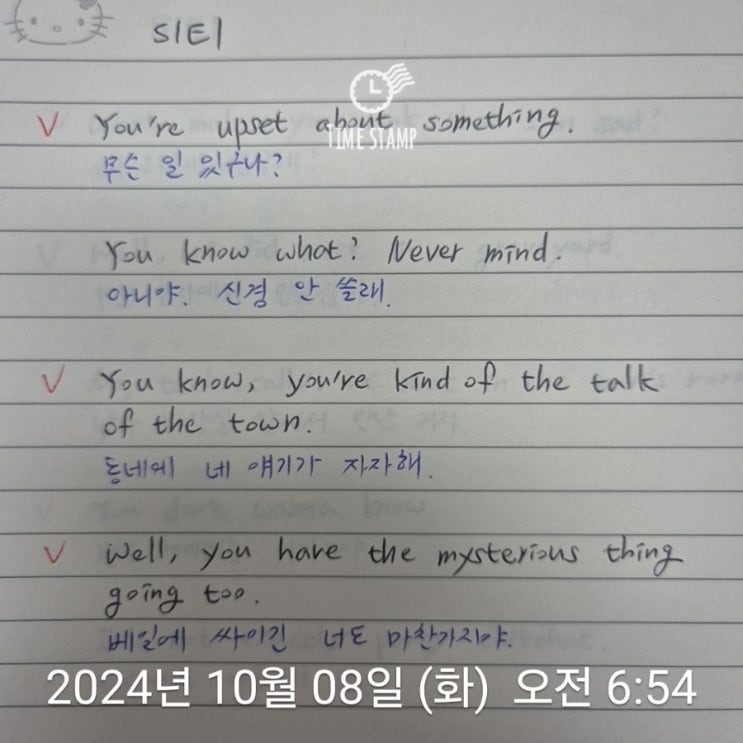 S1E1
TIMESTAMP
You're upset about something.
무슨 일 있구나?
You know what? Never mind.
아니야. 신경 안 쓸래.
You know, you're kind of the talk
of the town.
동네에 네 얘기가 자자해.
Well, you have the mysterious thing
going too.
베일에 싸이긴 너도 마찬가지야.
2024년 10월 08일 (화) 오전 6:54